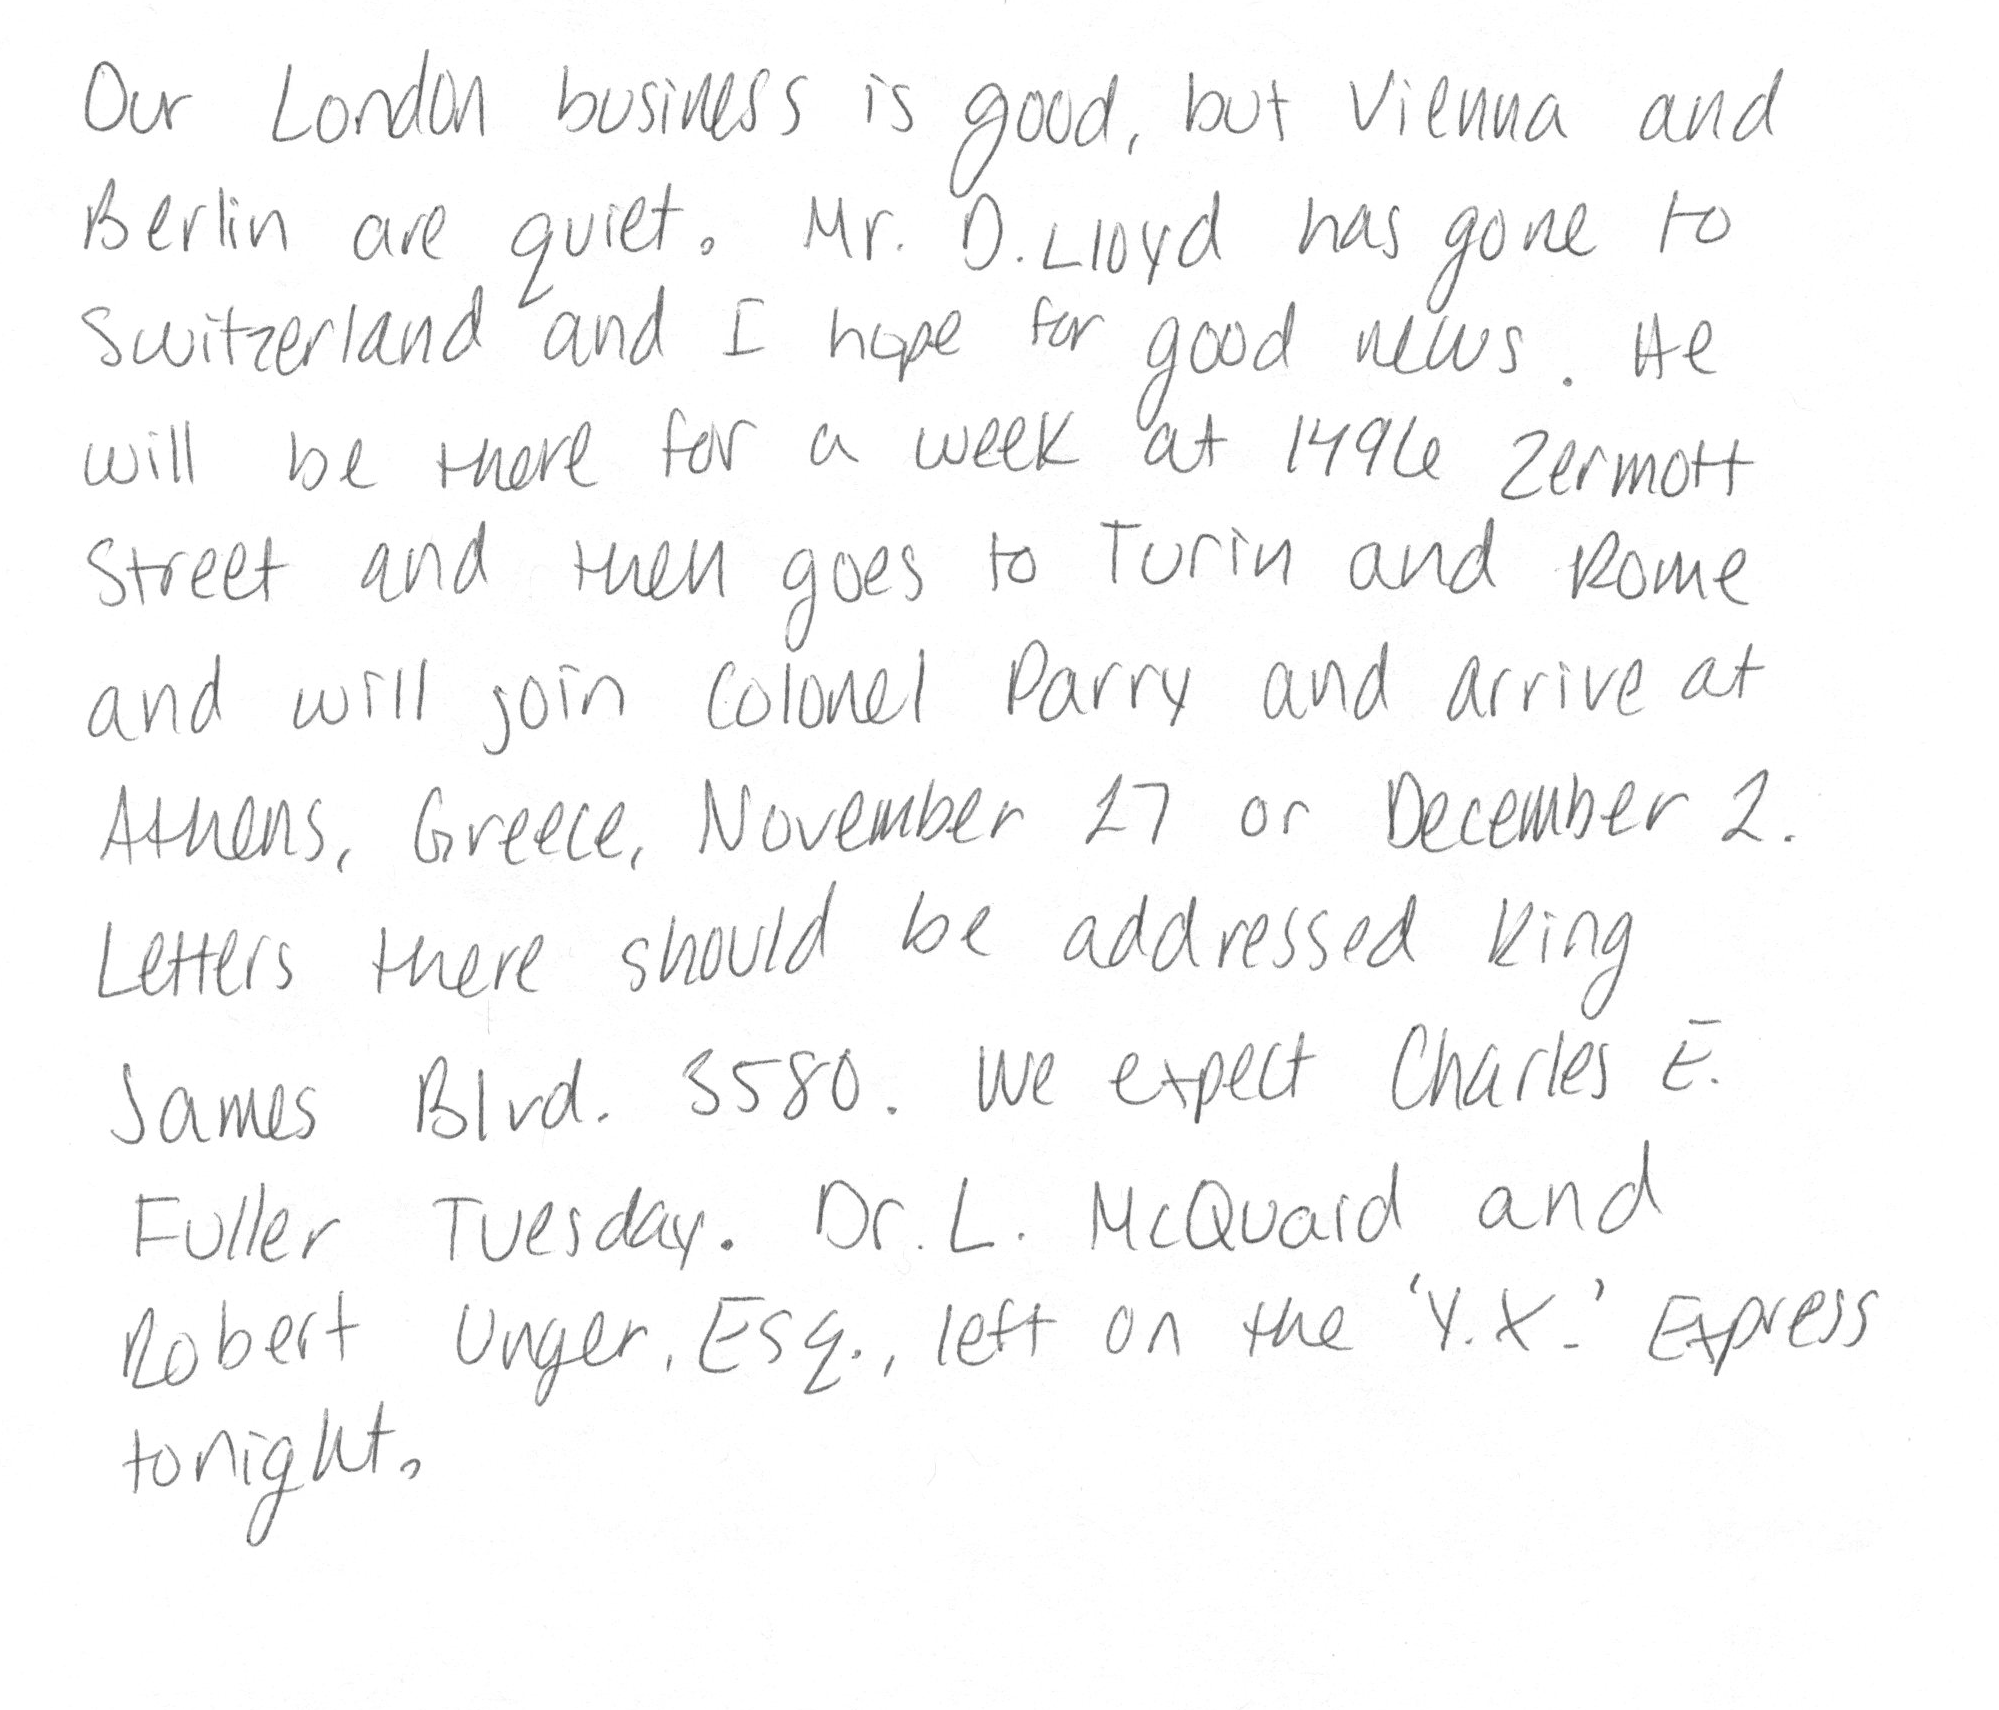 Our London business is good, but Vienna and
Berlin are quiet. Mr. D. Lloyd has gone to
Switzerland and I hope for good news. He
will be there for a week at 1496 Zermott
Street and then goes to Turin and Rome
and will join Colonel Parry and arrive at
Athens, Greece, November 27 or December 2.
Letters there should be addressed King
James Blvd. 3580. We expect Charles E.
Fuller Tuesday. Dr. L. McQuaid and
Robert Unger, Esq., left on the 'Y.X.' Express
tonight.